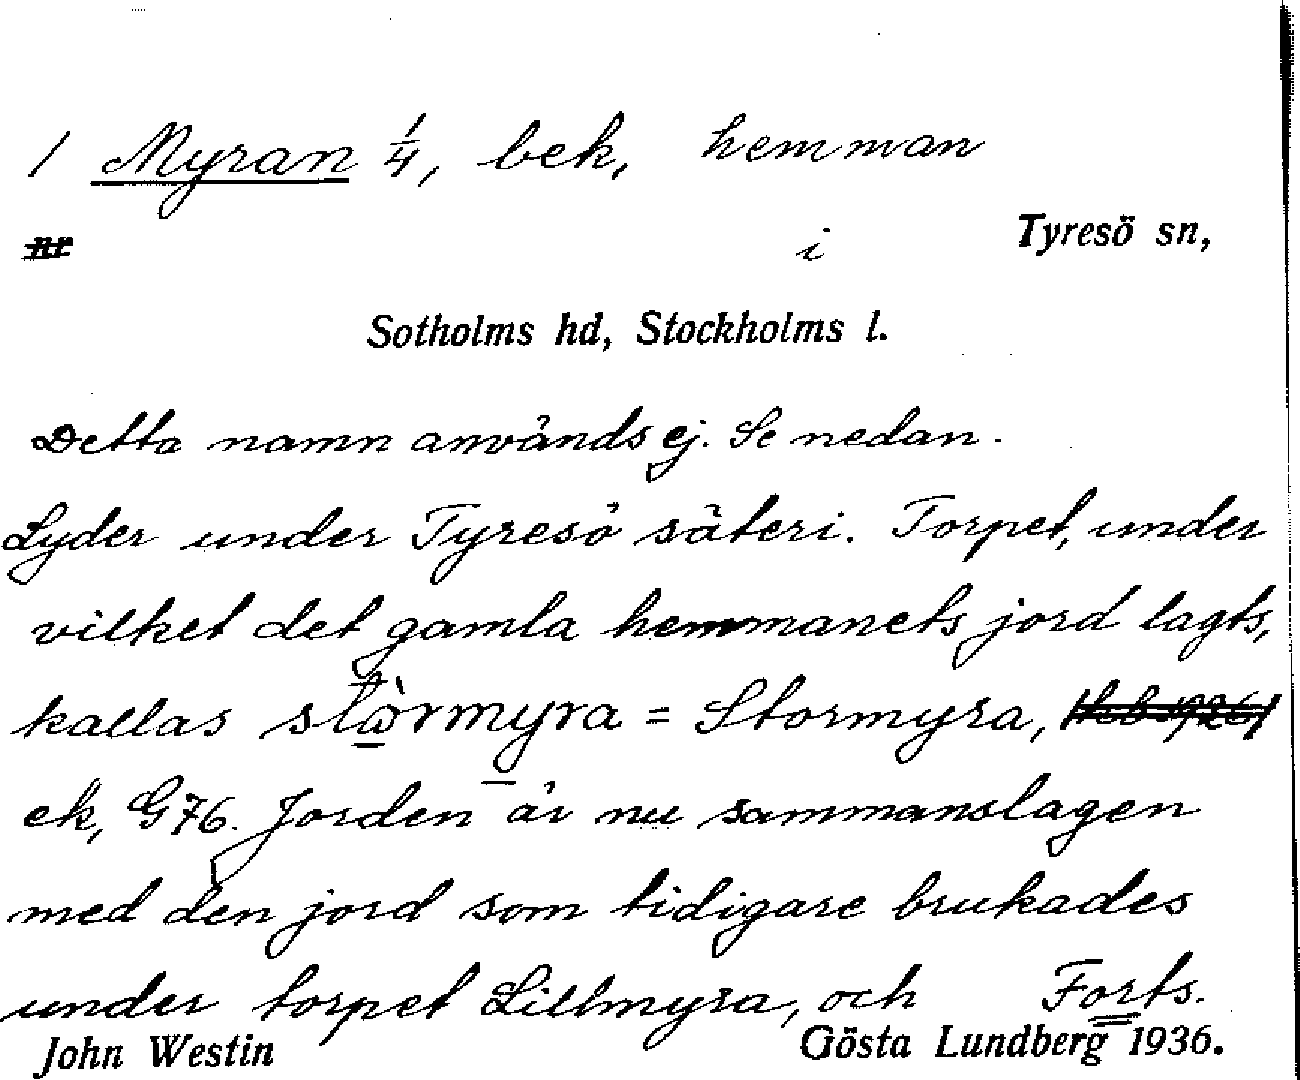 1 Myran 1/4, bek, hemman
nr
i Tyresö sn,
Sotholms hd, Stockholms l.
Detta namn används ej. Se nedan.
Lyder under Tyresö säteri. Torpet, under
vilket det gamla hemmanets jord lagts,
kallas = Stormyra,
ek, G76. Jorden är nu sammanslagen
med den jord som tidigare brukades
under torpet Lillmyra, och Forts.
John Westin Gösta Lundberg 1936.